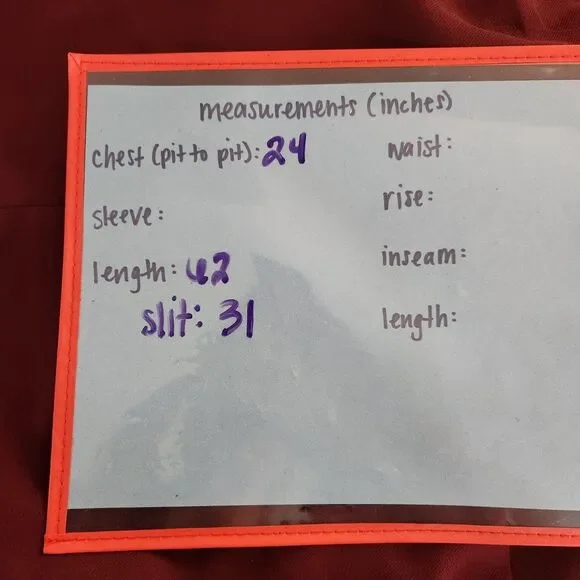 measurements (inches)
chest (pit to pit): 24
sleeve:
length: 42
slit: 31
waist:
rise:
inseam:
length: